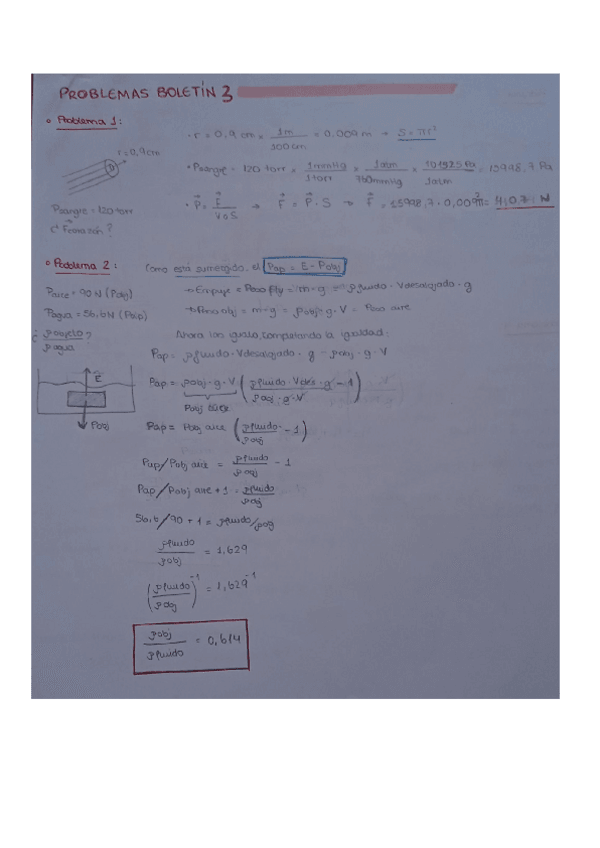 PROBLEMAS BOLETÍN 3
Problema 1:
r = 0,9 cm
· r = 0,9 cm × 1m / 100 cm = 0.009 m → S = πr²
Psangre = 120 torr
· Psangre = 120 torr × 1mmHg / 1torr × 1atm / 760mmHg × 101325 Pa / 1atm = 15998,7 Pa
¿ ?
· P = F / S → F = P · S → F = 15998,7 · 0,009²π =
Problema 2:
Como está sumergido, el Pap = E - Pobj
Paire = 90 N (Pobj)
Pagua = 56,6N (Pap)
¿ ρobjeto / ρagua ?
→ Empuje = = m · g = ρfluido · Vdesalojado · g
→ Peso obj = m · g = ρobj · g · V = Peso aire
Ahora los igualo, completando la igualdad:
Pap = ρfluido · Vdesalojado · g - ρobj · g · V
E
Pobj
Pap = ρobj · g · V ( ρfluido · Vdes · g / ρobj · g · V - 1 )
Pobj aire
Pap = Pobj aire ( ρfluido / ρobj - 1 )
Pap/Pobj aire = ρfluido / ρobj - 1
Pap/Pobj aire + 1 = ρfluido / ρobj
56,6/90 + 1 = ρfluido/ρobj
ρfluido / ρobj = 1,629
( ρfluido / ρobj )⁻¹ = 1,629⁻¹
ρobj / ρfluido = 0,614